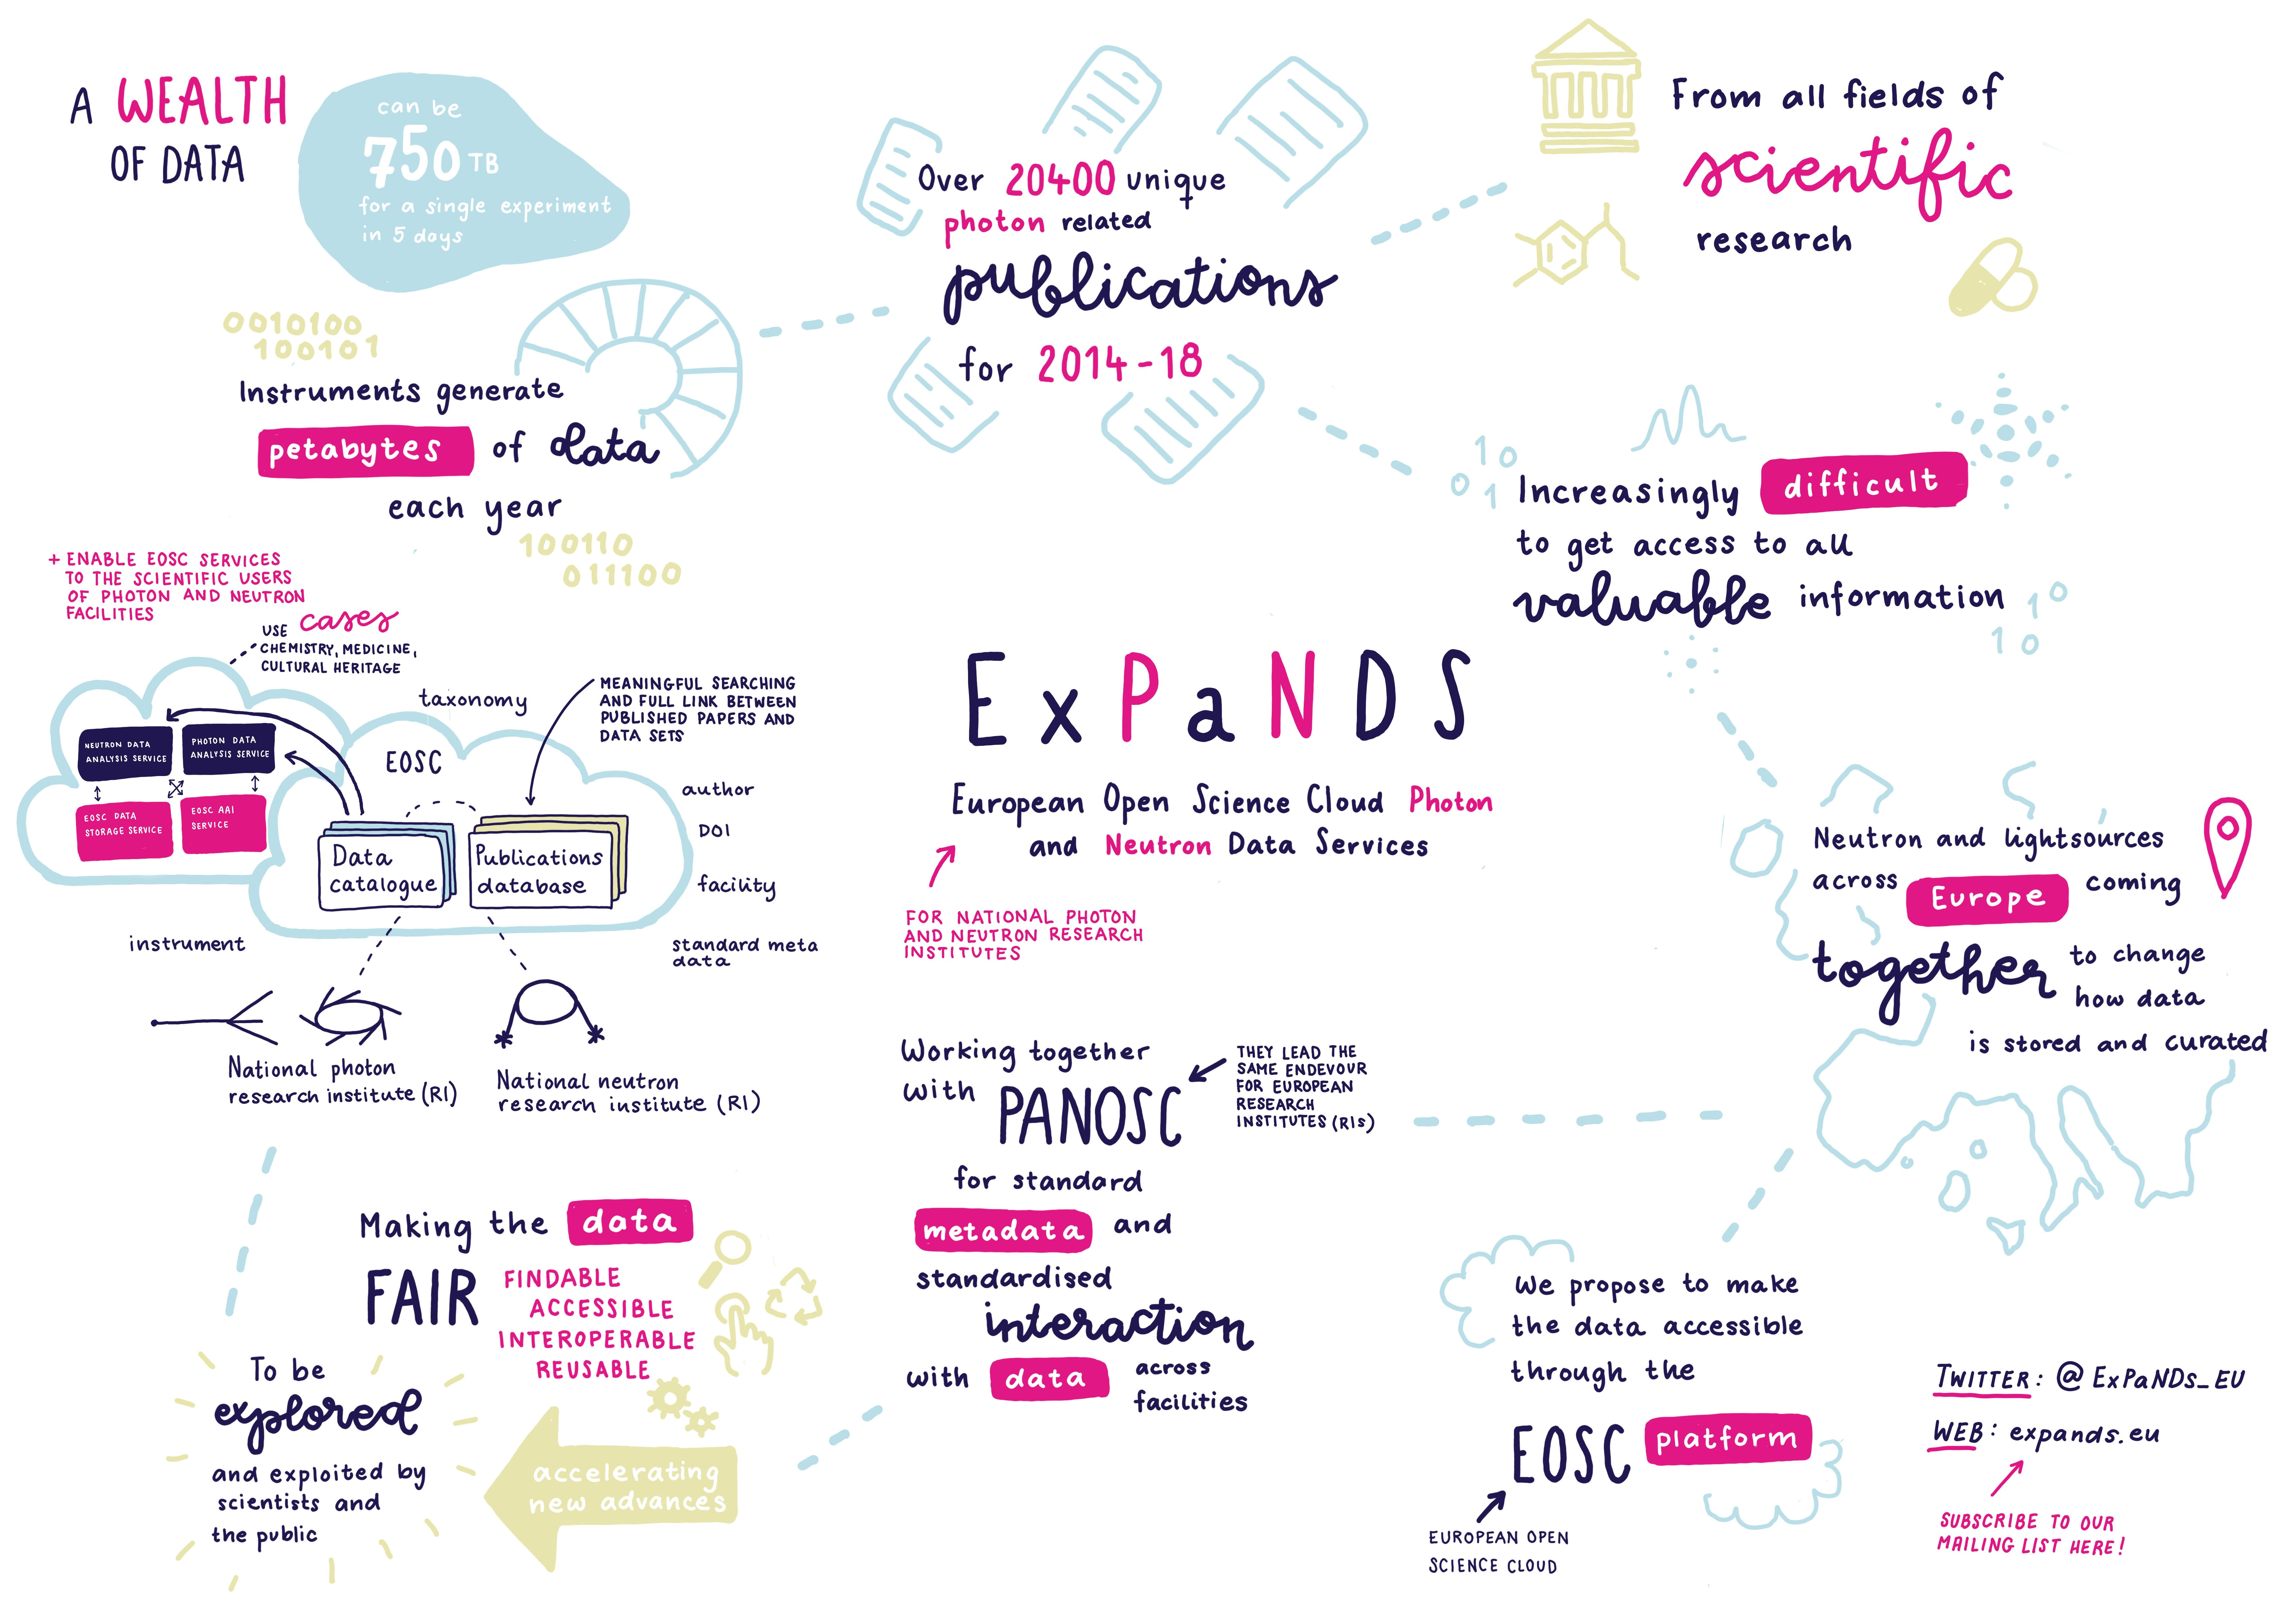 A WEALTH
OF DATA
can be
750 TB
for a single experiment
in 5 days
0010100
100101
Instruments generate
petabytes of data
each year
100110
011100
Over 20400 unique
photon related
publications
for 2014-18
From all fields of
scientific
research
10
01
Increasingly difficult
to get access to all
valuable information
10
10
+ ENABLE EOSC SERVICES
TO THE SCIENTIFIC USERS
OF PHOTON AND NEUTRON
FACILITIES
USE cases
CHEMISTRY, MEDICINE,
CULTURAL HERITAGE
taxonomy
MEANINGFUL SEARCHING
AND FULL LINK BETWEEN
PUBLISHED PAPERS AND
DATA SETS
NEUTRON DATA
ANALYSIS SERVICE
PHOTON DATA
ANALYSIS SERVICE
EOSC DATA
STORAGE SERVICE
EOSC AAI
SERVICE
EOSC
Data
catalogue
Publications
database
author
DOI
facility
instrument
standard meta
data
National photon
research institute (RI)
National neutron
research institute (RI)
ExPaNDS
European Open Science Cloud Photon
and Neutron Data Services
FOR NATIONAL PHOTON
AND NEUTRON RESEARCH
INSTITUTES
Neutron and lightsources
across Europe coming
together to change
how data
is stored and curated
Working together
with PANOSC
THEY LEAD THE
SAME ENDEVOUR
FOR EUROPEAN
RESEARCH
INSTITUTES (RIs)
for standard
metadata and
standardised
interaction
with data across
facilities
We propose to make
the data accessible
through the
EOSC platform
EUROPEAN OPEN
SCIENCE CLOUD
Making the data
FAIR
FINDABLE
ACCESSIBLE
INTEROPERABLE
REUSABLE
accelerating
new advances
To be
explored
and exploited by
scientists and
the public
TWITTER: @ExPaNDs_EU
WEB: expands.eu
SUBSCRIBE TO OUR
MAILING LIST HERE!